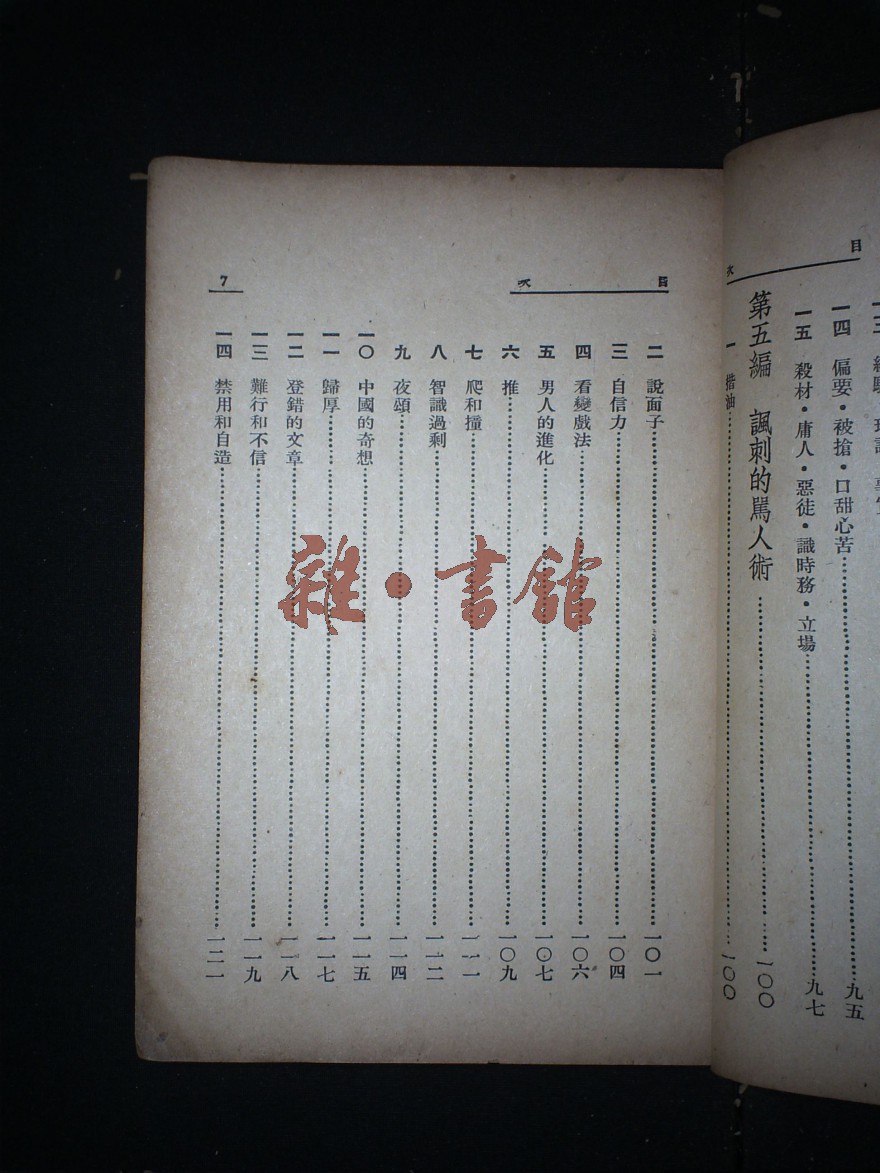 目 次
一四 偏要・被搶・口甜心苦…………九五
一五 殺材・庸人・惡徒・識時務・立場…………九七
第五編 諷刺的罵人術…………一〇〇
一 揩油…………一〇〇
目 次 7
二 說面子…………一〇一
三 自信力…………一〇四
四 看變戲法…………一〇六
五 男人的進化…………一〇七
六 推…………一〇九
七 爬和撞…………一一一
八 智識過剩…………一一二
九 夜頌…………一一四
一〇 中國的奇想…………一一五
一一 歸厚…………一一七
一二 登錯的文章…………一一八
一三 難行和不信…………一一九
一四 禁用和自造…………一二一
雜・書館